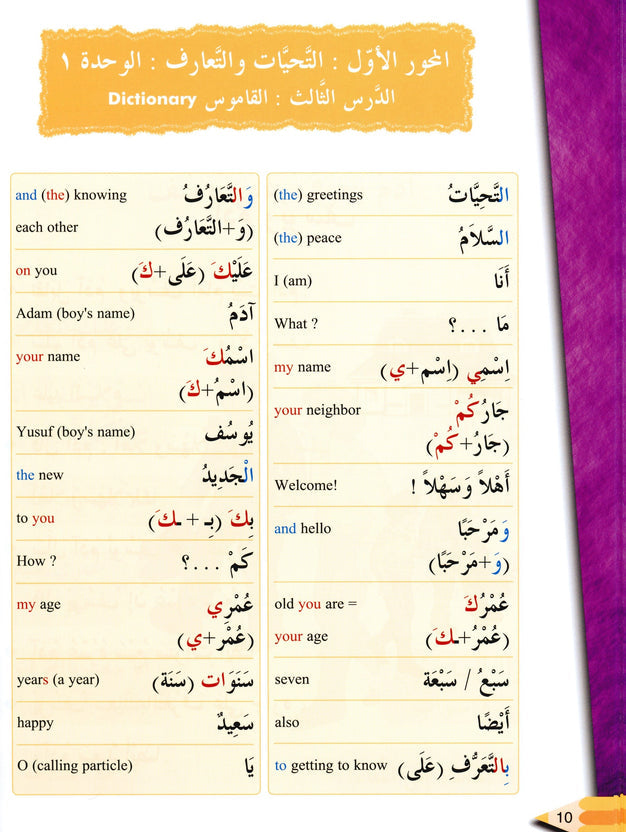 المحور الأوّل : التَّحيَّات والتَّعارف : الوحدة ١
الدَّرس الثَّالث : القاموس Dictionary
(the) greetings التَّحِيَّاتُ
(the) peace السَّلاَمُ
I (am) أَنَا
What ? مَا ...؟
my name اِسْمِي (اِسْم+ي)
your neighbor جَارُكُمْ
(جَارُ+كُمْ)
Welcome! أَهْلاً وَسَهْلاً !
and hello وَمَرْحَبًا
(وَ+مَرْحَبًا)
old you are = عُمْرُكَ
your age (عُمْرُ+ـكَ)
seven سَبْعُ / سَبْعَة
also أَيْضًا
to getting to know بِالتَّعَرُّفِ (عَلَى)
and (the) knowing وَالتَّعَارُفُ
each other (وَ+التَّعَارُف)
on you عَلَيْكَ (عَلَى+كَ)
Adam (boy's name) آدَمُ
your name اسْمُكَ
(اسْمُ+كَ)
Yusuf (boy's name) يُوسُف
the new الْجَدِيدُ
to you بِكَ (بِـ + ـكَ)
How ? كَمْ ...؟
my age عُمْرِي
(عُمْر+ي)
years (a year) سَنَوَات (سَنَة)
happy سَعِيدٌ
O (calling particle) يَا
10